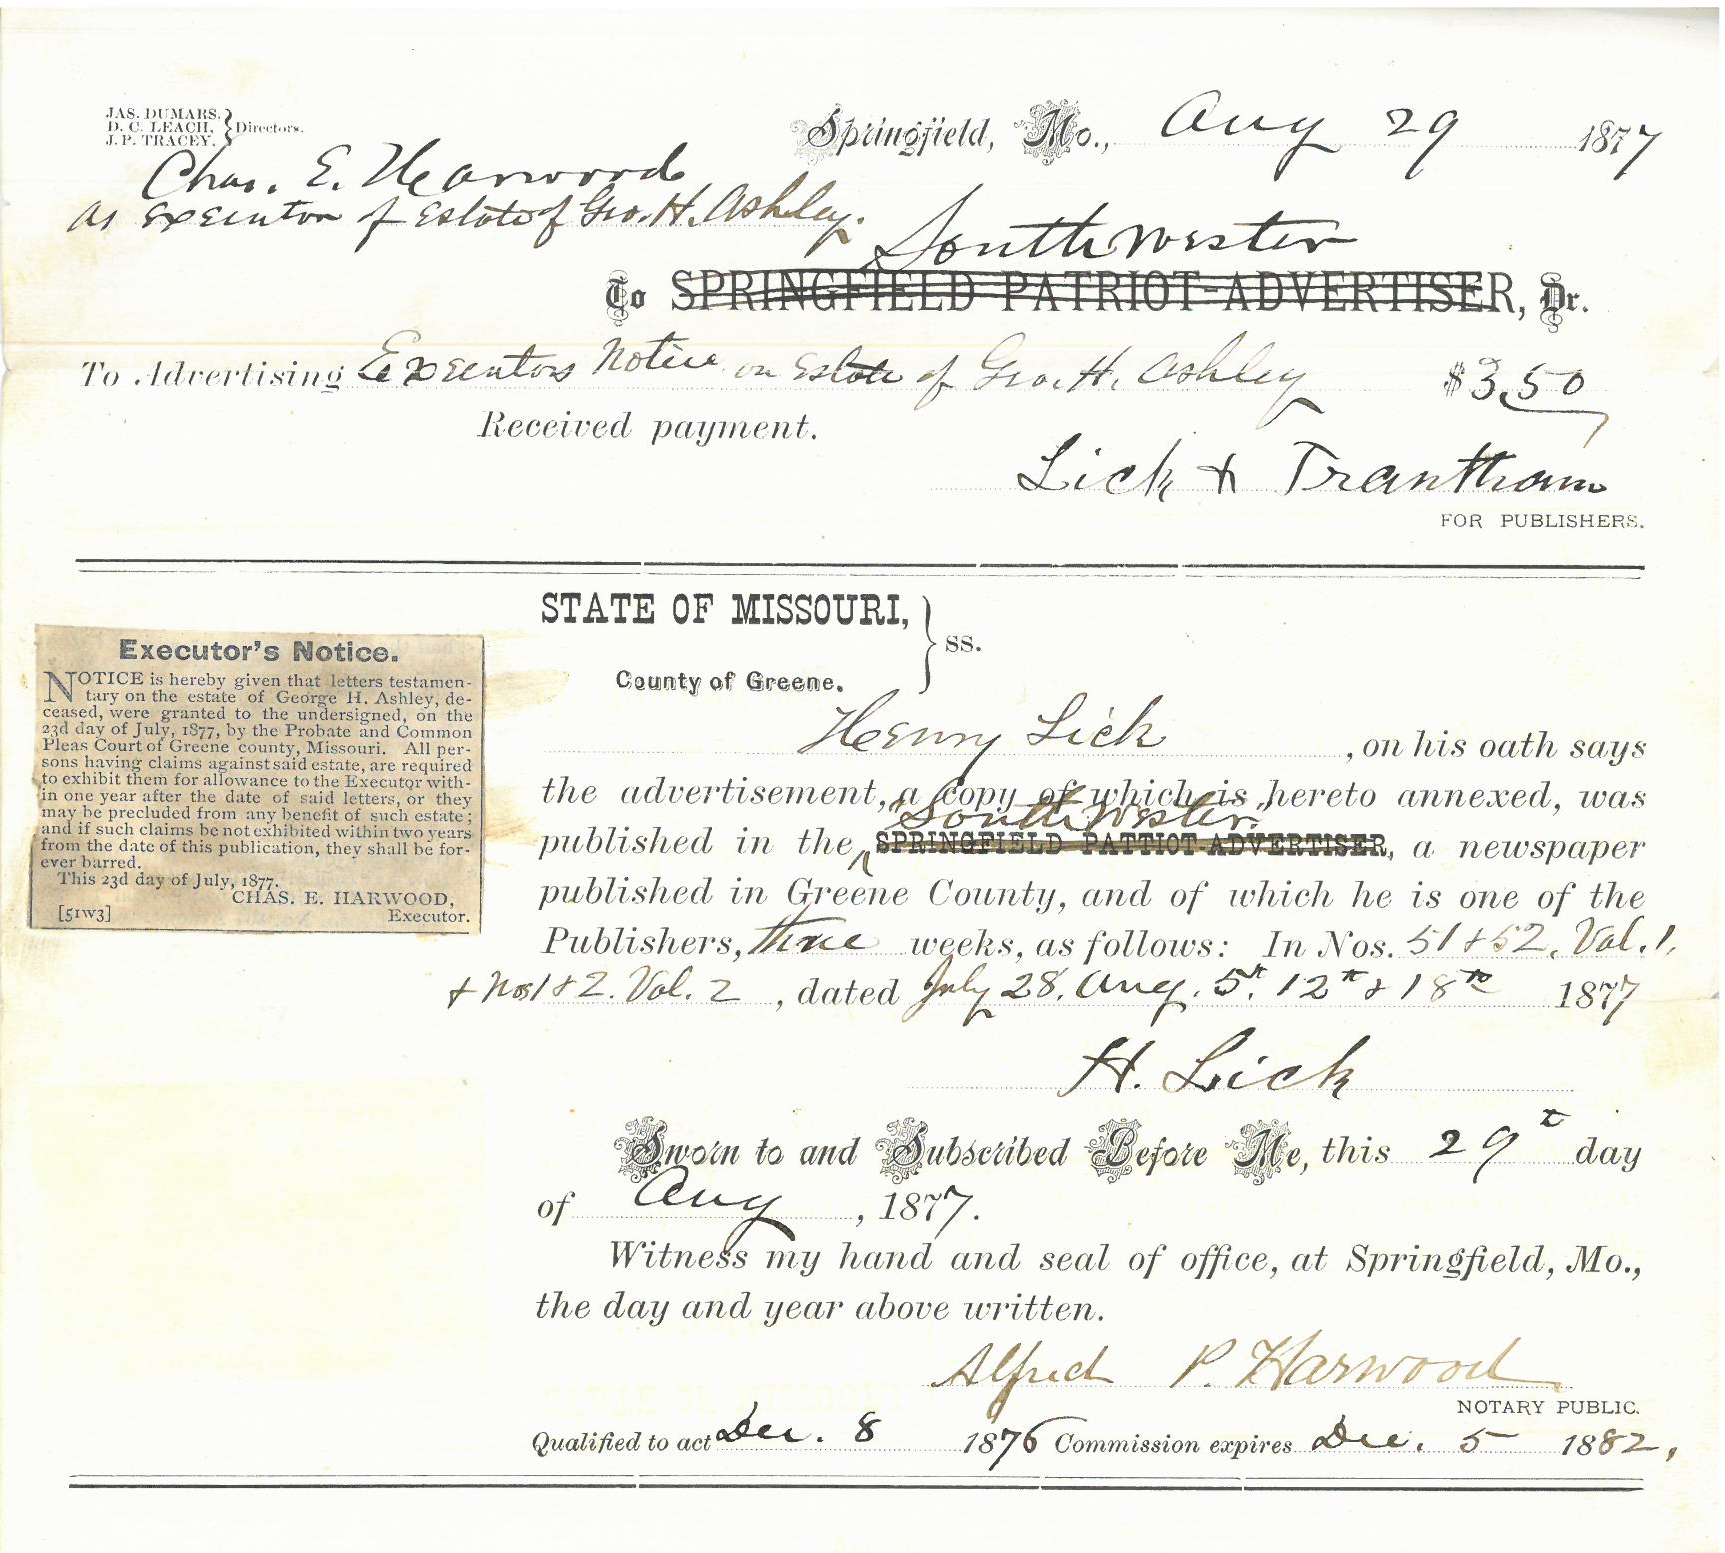 JAS. DUMARS.
D. C. LEACH, } Directors.
J. P. TRACEY.
Springfield, Mo., Aug 29 1877
Chas. E. Harwood
as Executor of Estate of Geo. H. Ashley.
South Wester
To SPRINGFIELD PATRIOT-ADVERTISER, Dr.
To Advertising Executors Notice on Estate of Geo. H. Ashley $3.50
Received payment.
Lick & Trantham
FOR PUBLISHERS.
STATE OF MISSOURI, } ss.
County of Greene.
Executor's Notice.
NOTICE is hereby given that letters testamen-
tary on the estate of George H. Ashley, de-
ceased, were granted to the undersigned, on the
23d day of July, 1877, by the Probate and Common
Pleas Court of Greene county, Missouri. All per-
sons having claims against said estate, are required
to exhibit them for allowance to the Executor with-
in one year after the date of said letters, or they
may be precluded from any benefit of such estate;
and if such claims be not exhibited within two years
from the date of this publication, they shall be for-
ever barred.
This 23d day of July, 1877.
CHAS. E. HARWOOD,
[51w3] Executor.
Henry Lick, on his oath says
the advertisement, a copy of which is hereto annexed, was
South Wester.
published in the SPRINGFIELD PATTIOT-ADVERTISER, a newspaper
published in Greene County, and of which he is one of the
Publishers, three weeks, as follows: In Nos. 51 & 52, Vol. 1,
& Nos 1 & 2. Vol. 2, dated July 28. Aug. 5th, 12th & 18th 1877
H. Lick
Sworn to and Subscribed Before Me, this 29th day
of Aug, 1877.
Witness my hand and seal of office, at Springfield, Mo.,
the day and year above written.
Alfred P. Harwood
NOTARY PUBLIC.
Qualified to act Dec. 8 1876 Commission expires Dec. 5 1882,